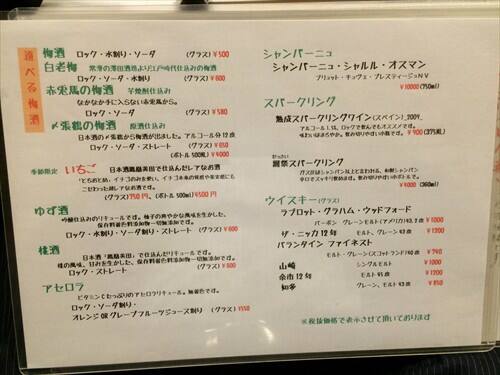 選べる梅酒
梅酒
ロック・水割り・ソーダ (グラス) ¥500
白老梅 常滑の澤田酒造より江戸時代仕込みの梅酒
ロック・ソーダ・水割り (グラス) ¥600
赤兎馬の梅酒 芋焼酎仕込み
なかなか手に入らない赤兎馬から。
ロック・ソーダ (グラス) ¥580
〆張鶴の梅酒 原酒仕込み
日本酒の〆張鶴から梅酒が出ました。アルコール分12度
ロック・ソーダ・ストレート (グラス) ¥650
(ボトル 500ML) ¥4000
季節限定 いちご 日本酒鳳凰美田で仕込んだレアなお酒
(グラス) 750円、 (ボトル 500ml) 4500円
ゆず酒
吟醸仕込みのリキュールです。柚子の爽やかな風味を生かした、
保存料着色料添加物一切無添加です。
ロック・水割り・ソーダ割り・ストレート (グラス) ¥600
桃酒
日本酒「鳳凰美田」で仕込んだリキュールです。
桃の風味、甘みを生かした、保存料着色料添加物一切無添加です。
ロック・ストレート (グラス) ¥600
アセロラ
ビタミンCたっぷりのアセロラリキュール。無着色です。
ロック・ソーダ割り・
オレンジORグレープフルーツジュース割り (グラス) ¥550
シャンパーニュ
シャンパーニュ・シャルル・オスマン
ブリュット・キュヴェ・プレスティージュNV
¥10000 (750ml)
スパークリング
熟成スパークリングワイン(スペイン)、2009、
アルコール1%、ロックで飲んでもオススメです。
¥900 (375ML)
讃祭スパークリング
¥4000 (360ml)
ウイスキー (グラス)
ラブロット・グラハム・ウッドフォード
バーボン グレーンモルト(アメリカ) 43.2度 ¥1000
ザ・ニッカ12年 モルト、グレーン 43度 ¥1200
バランタイン ファイネスト
モルト・グレーン(スコットランド) 40度 ¥740
山崎 シングルモルト ¥1000
余市12年 モルト 45度 ¥1200
知多 グレーン、モルト 43度 ¥850
※税抜価格で表示させて頂いております